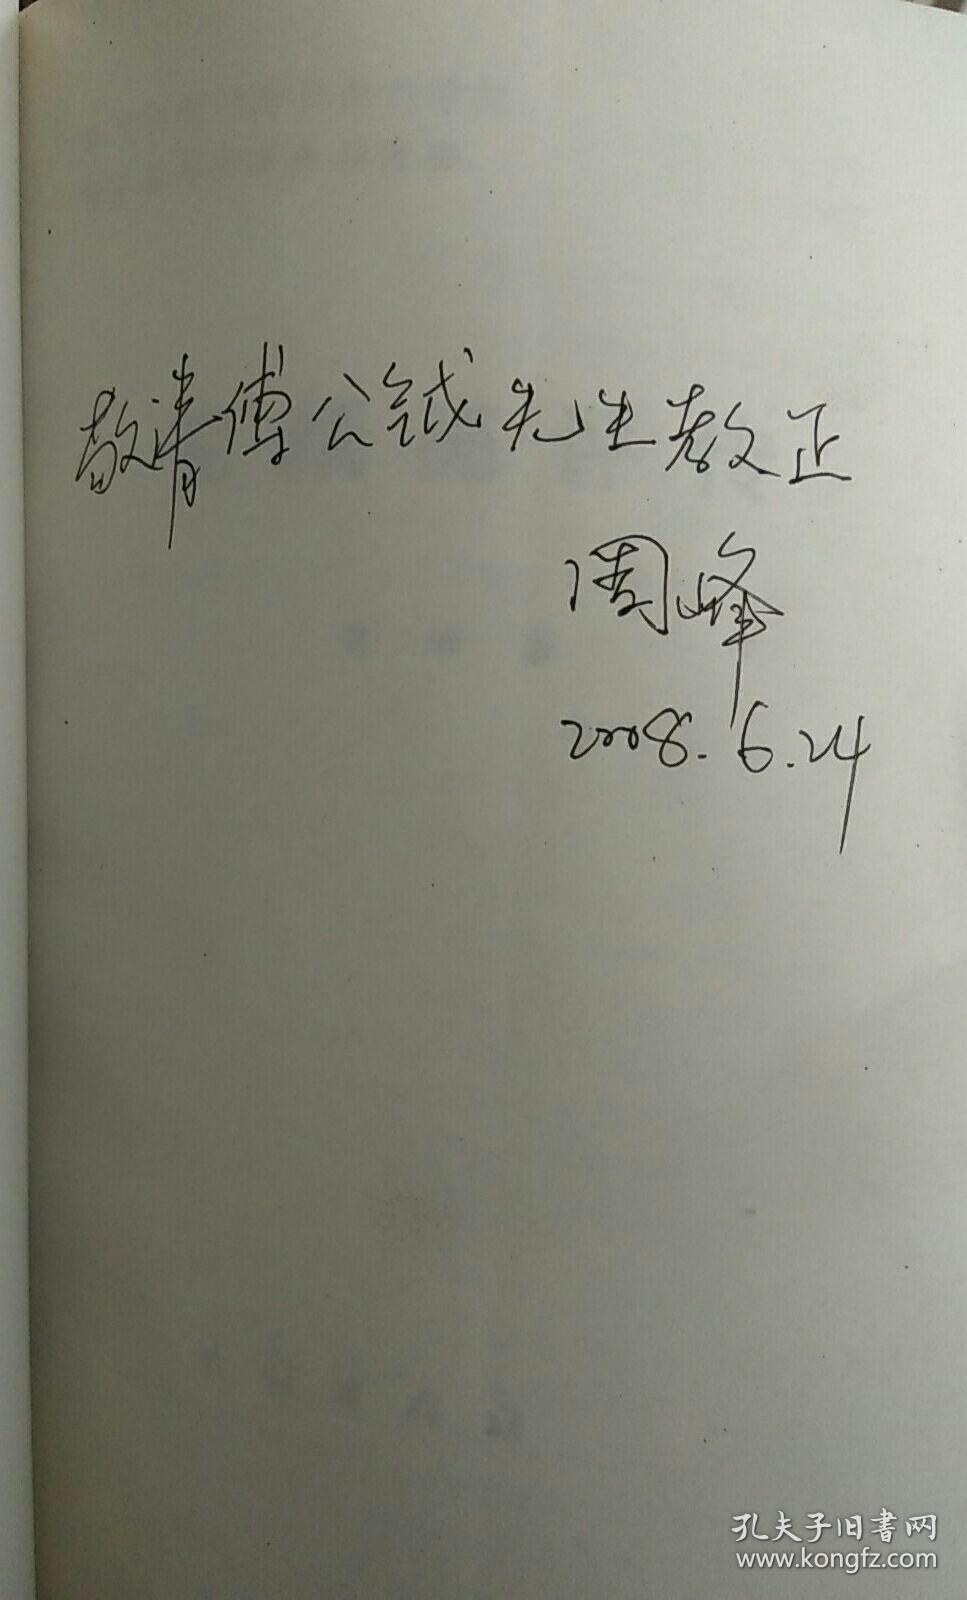 敬请傅公钺先生教正
周峰
2008.6.24
孔夫子旧書网
www.kongfz.com